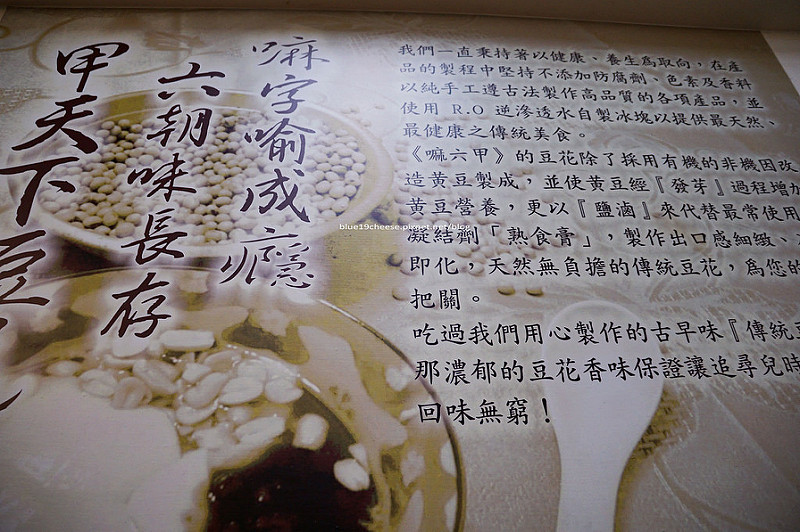 嘛字喻成癮
六朝味長存
甲天下豆
我們一直秉持著以健康、養生為取向，在產
品的製程中堅持不添加防腐劑、色素及香料
以純手工遵古法製作高品質的各項產品，並
使用 R.O 逆滲透水自製冰塊以提供最天然、
最健康之傳統美食。
《嘛六甲》的豆花除了採用有機的非機因改
造黃豆製成，並使黃豆經『發芽』過程增加
黃豆營養，更以『鹽滷』來代替最常使用
凝結劑「熟食膏」，製作出口感細緻、
即化，天然無負擔的傳統豆花，為您的
把關。
吃過我們用心製作的古早味『傳統豆
那濃郁的豆花香味保證讓追尋兒時
回味無窮！
blue19cheese.pixnet.net/blog